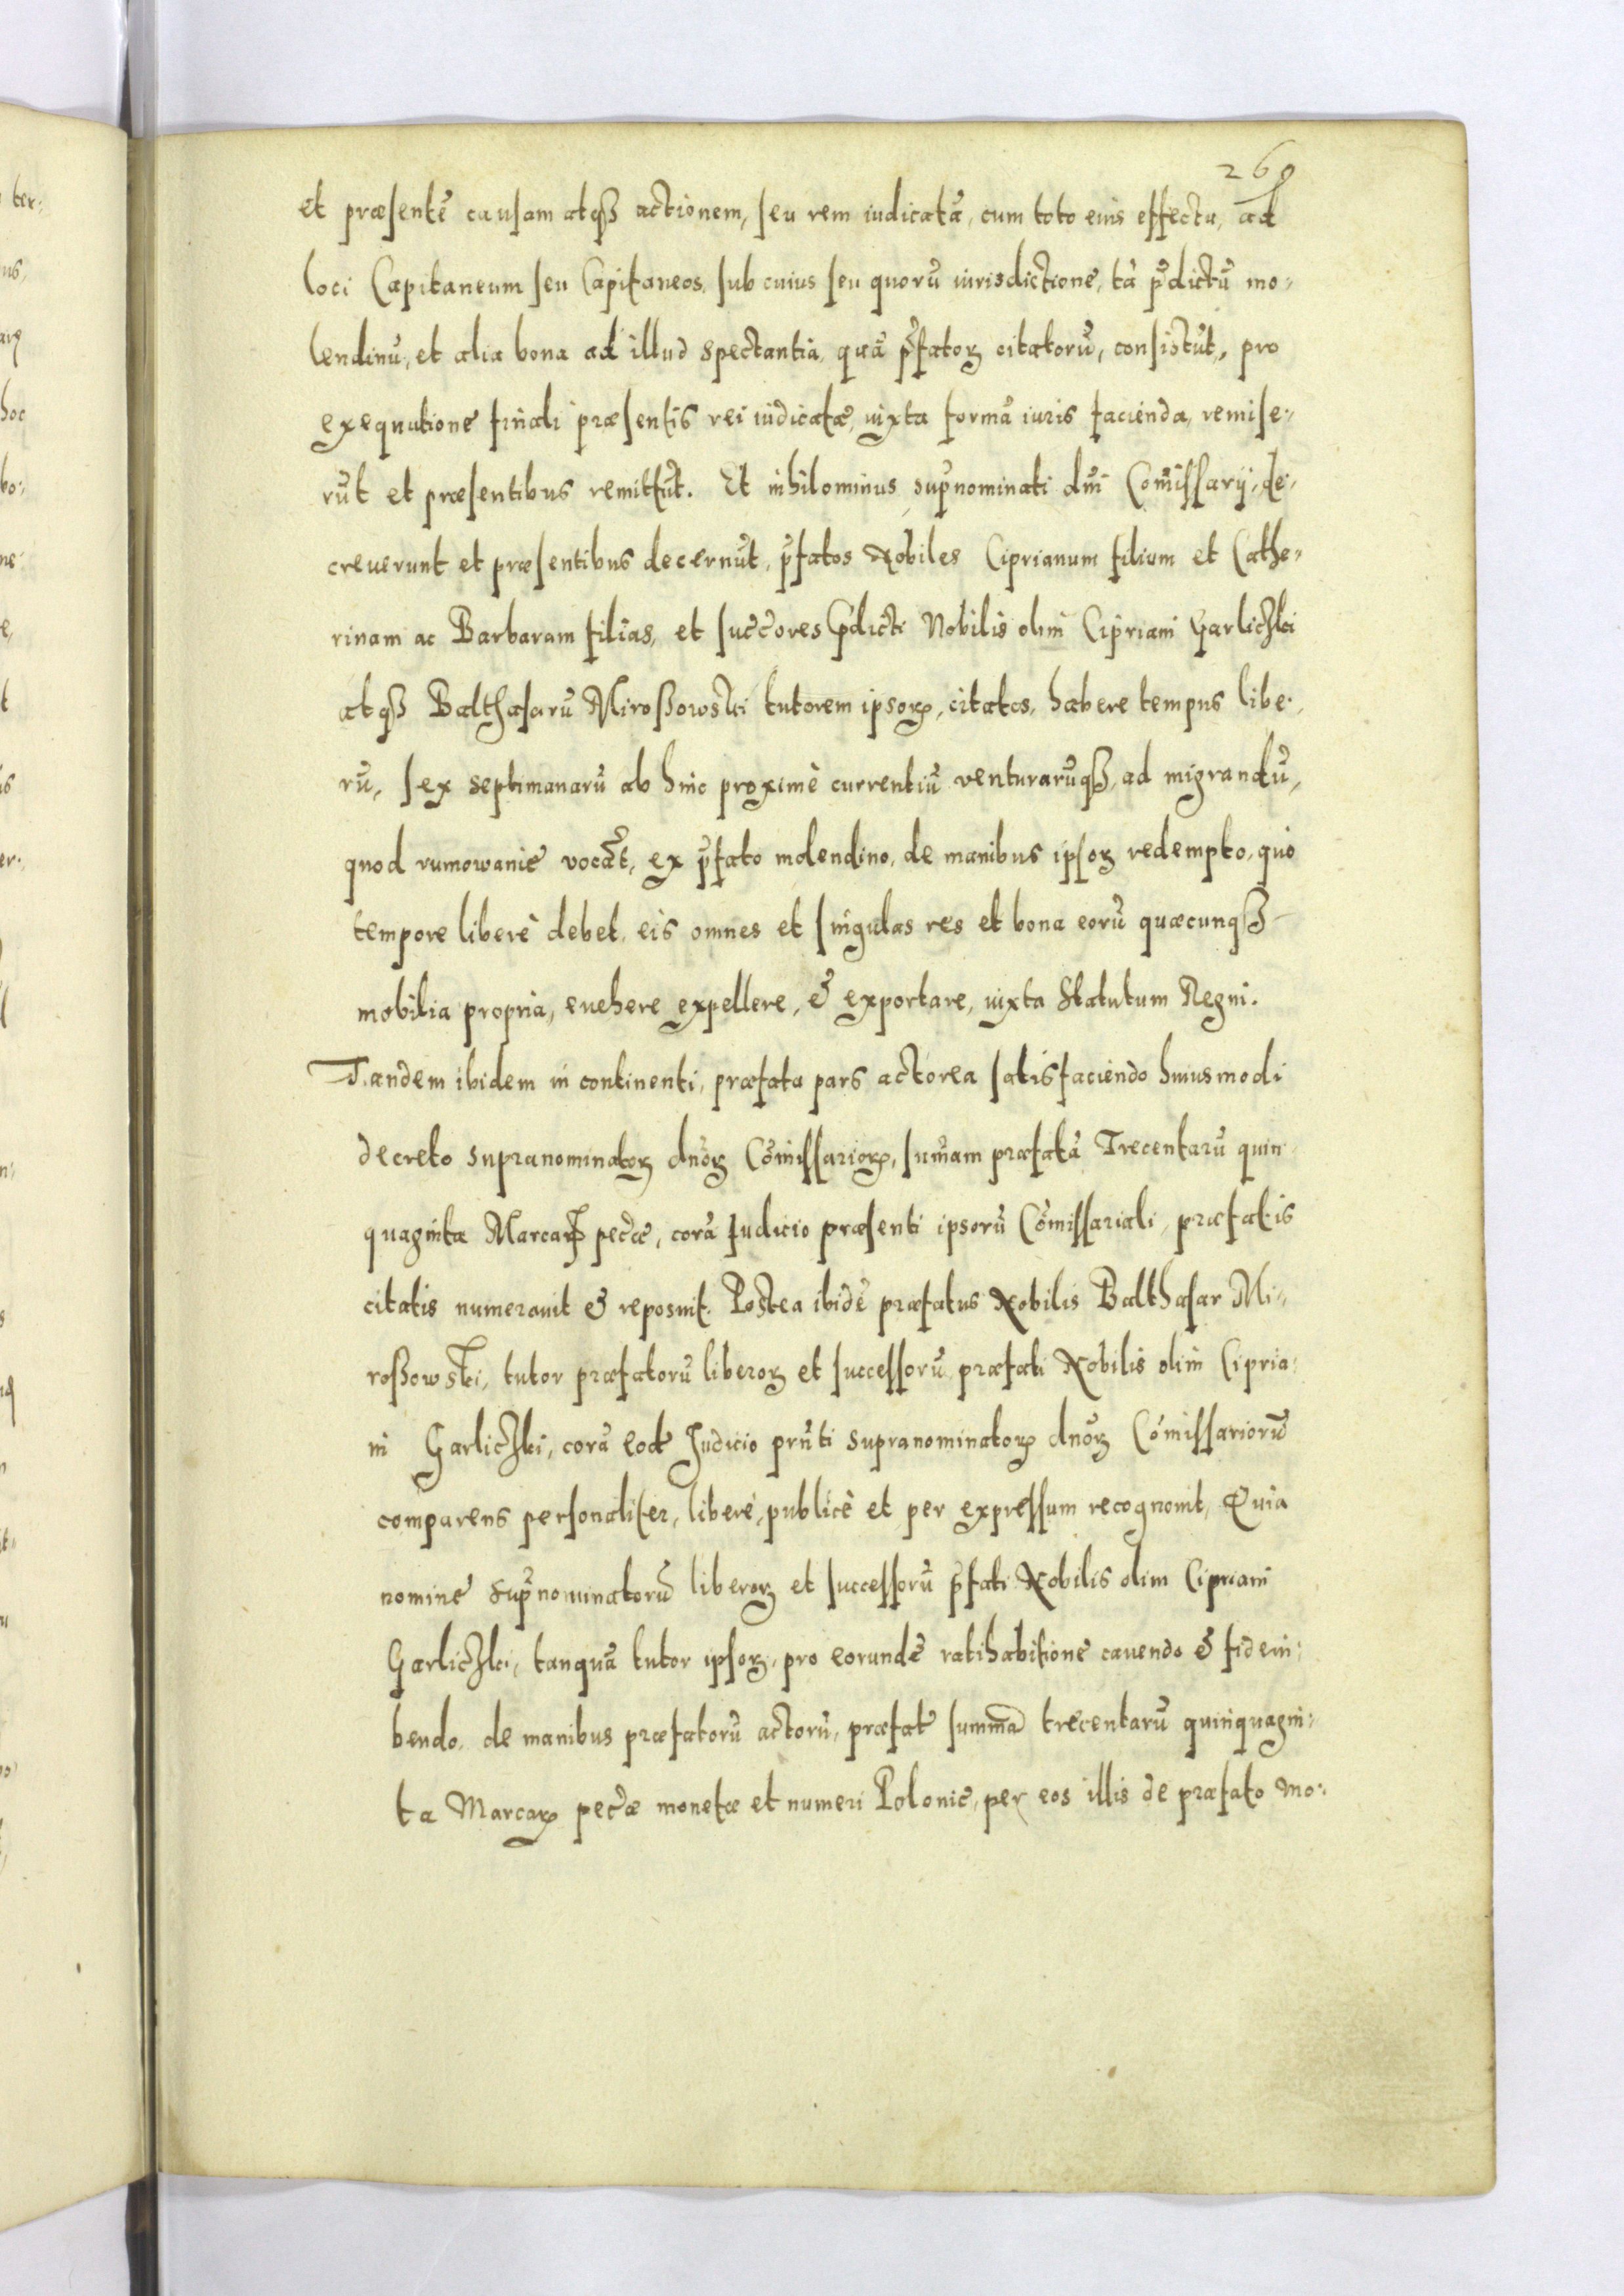 260
et præsentē causam atqß actionem, seu rem iudicatā, cum toto eius effectu, ad
loci Capitaneum seu Capitaneos, sub cuius seu quorū iurisdictione, tā p̄dictū mo-
lendinū, et alia bona ad illud spectantia, quā p̄fatoꝝ citatorū, consistūt, pro
exequutione finali præsentis rei iudicatæ, iuxta formā iuris facienda, remise-
rūt et præsentibus remittūt. Et nihilominus sup̄nominati dn̄i Com̄issarij, de-
creuerunt et præsentibus decernūt, p̄fatos Nobiles Ciprianum filium et Cathe-
rinam ac Barbaram filias, et succ̄ores p̄dicti Nobilis olim Cipriani Garliczki
atqß Balthasarū Miroßowski tutorem ipsoꝝ, citatos, habere tempus libe-
rū, sex septimanarū ab hinc proximè currentiū venturarūqß, ad migrandū,
quod rumowanie vocāt, ex p̄fato molendino, de manibus ipsoꝝ redempto, quo
tempore liberè debet, eis omnes et singulas res et bona eorū quæcunqß
mobilia propria, euehere expellere, & exportare, iuxta Statutum Regni.
Tandem ibidem in continenti, præfata pars actorea satisfaciendo huiusmodi
decreto supranominatoꝝ dn̄oꝝ Com̄issarioꝝ, sum̄am præfatā Trecentarū quin
quaginta Marcaꝝ pec̄æ, corā Iudicio præsenti ipsorū Com̄issariali, præfatis
citatis numerauit & reposuit. Postea ibidē præfatus Nobilis Balthasar Mi-
roßowski, tutor præfatorū liberoꝝ et successorū præfati Nobilis olim Cipria-
ni Garliczki, corā eodē Iudicio prn̄ti supranominatoꝝ dn̄oꝝ Com̄issariorū
comparens personaliter, liberè, publicè et per expressum recognouit, Quia
nomine sup̄nominatorū liberoꝝ et successorū p̄fati Nobilis olim Cipriani
Garliczki, tanquā tutor ipsoꝝ, pro eorundē ratihabitione cauendo & fideiu-
bendo, de manibus præfatorū actorū, præfatā summā trecentarū quinquagin-
ta Marcaꝝ pec̄æ monetæ et numeri Polonic̄, per eos illis de præfato mo-